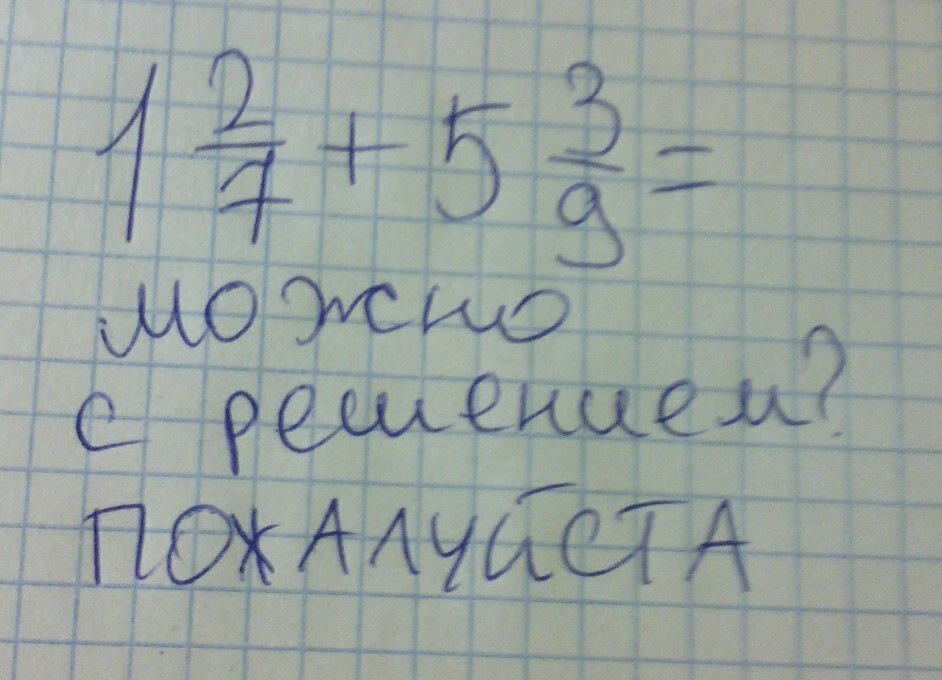 1 2/7 + 5 3/9 =
можно
с решением?
ПОЖАЛУЙСТА